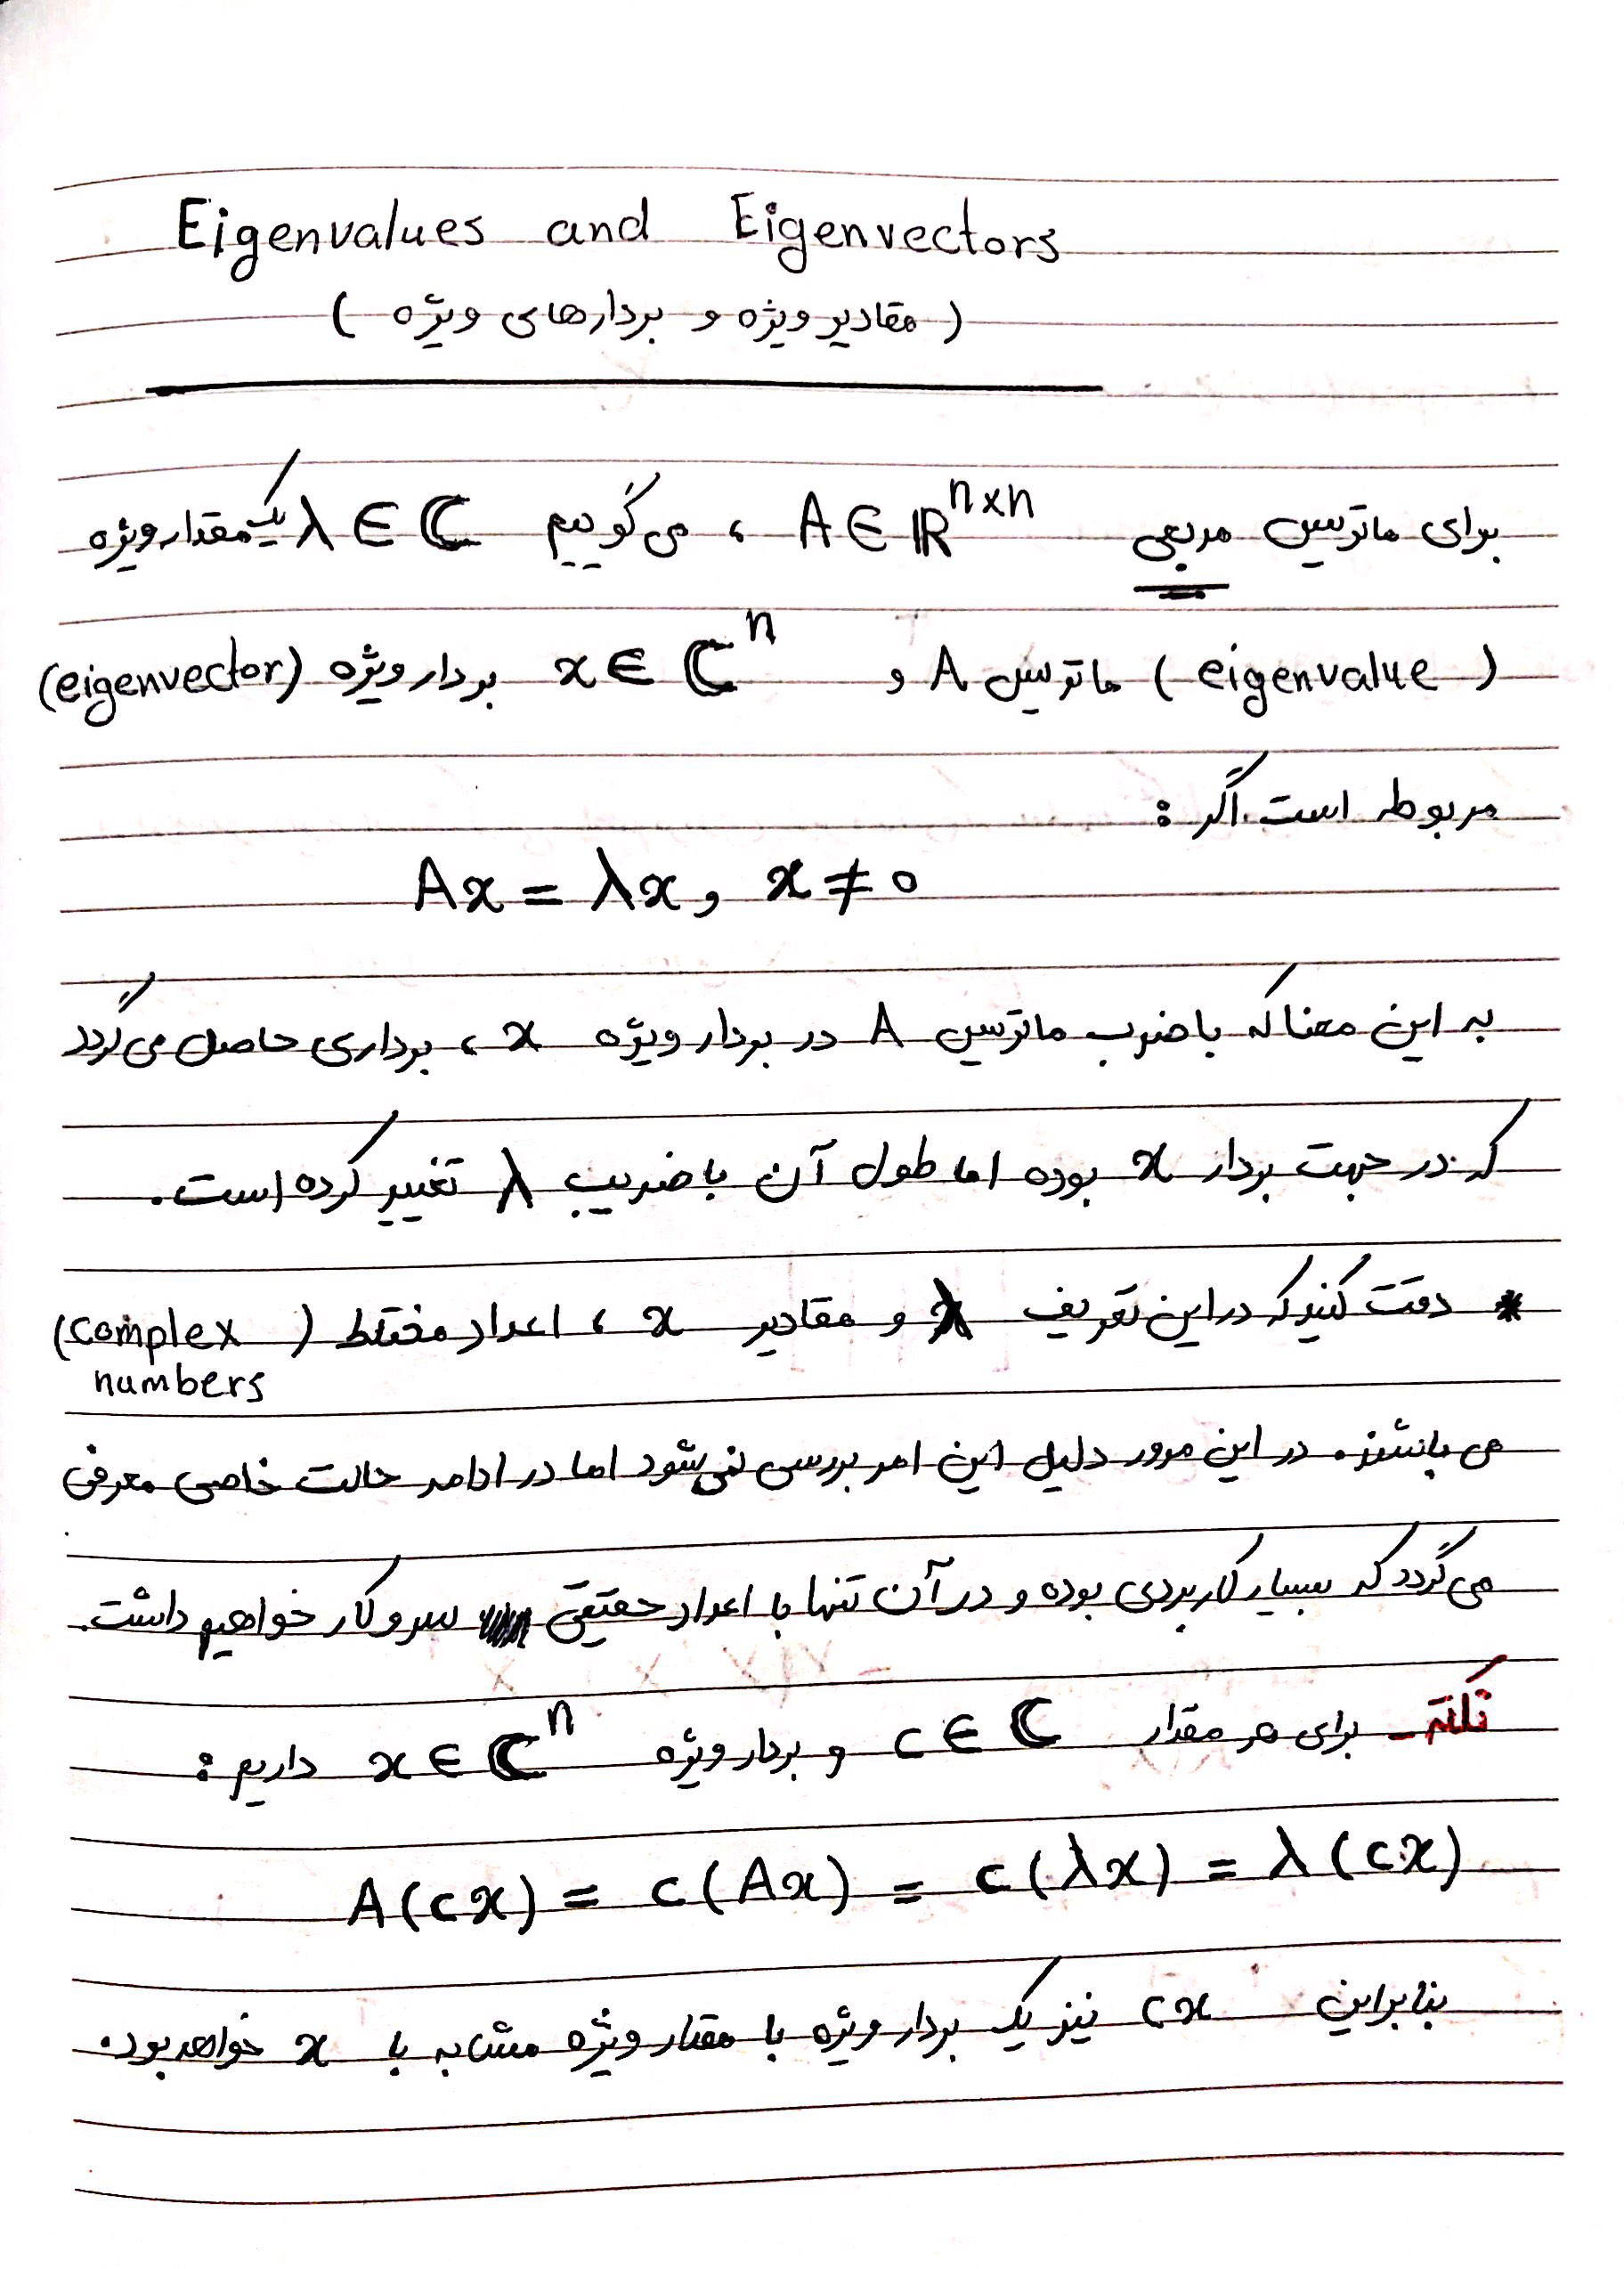 Eigenvalues and Eigenvectors
(مقادیر ویژه و بردارهای ویژه)
برای ماتریس مربعی A ∈ ℝⁿˣⁿ ، می‌گوییم λ ∈ ℂ یک مقدار ویژه
(eigenvalue) ماتریس A و x ∈ ℂⁿ بردار ویژه (eigenvector)
مربوطه است اگر :
Ax = λx , x ≠ 0
به این معنا که با ضرب ماتریس A در بردار ویژه x ، برداری حاصل می‌گردد
که در جهت بردار x بوده اما طول آن با ضریب λ تغییر کرده است.
* دقت کنید که در این تعریف λ و مقادیر x ، اعداد مختلط (complex
numbers)
می باشند. در این مرور دلیل این امر بررسی نمی‌شود اما در ادامه حالت خاصی معرفی
می‌گردد که بسیار کاربردی بوده و در آن تنها با اعداد حقیقی سر و کار خواهیم داشت.
نکته - برای هر مقدار c ∈ ℂ و بردار ویژه x ∈ ℂⁿ داریم :
A(cx) = c(Ax) = c(λx) = λ(cx)
بنابراین cx نیز یک بردار ویژه با مقدار ویژه مشابه با x خواهد بود.